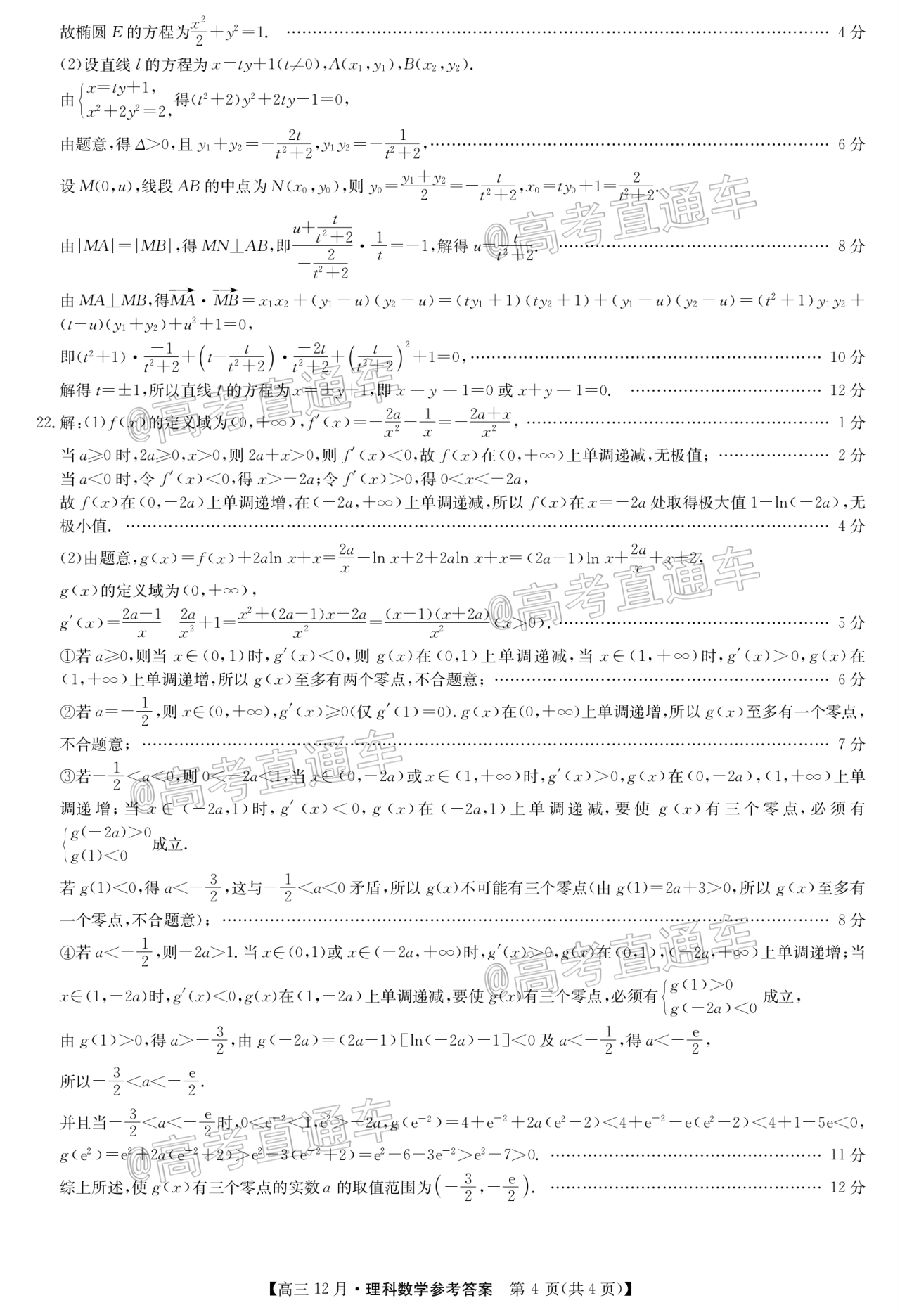 故椭圆 E 的方程为x²/2+y²=1. …… 4 分
(2)设直线 l 的方程为 x=ty+1(t≠0),A(x₁,y₁),B(x₂,y₂).
由{x=ty+1, x²+2y²=2,得(t²+2)y²+2ty-1=0,
由题意,得 Δ>0,且 y₁+y₂=-2t/(t²+2),y₁y₂=-1/(t²+2), …… 6 分
设 M(0,u),线段 AB 的中点为 N(x₀,y₀),则 y₀=(y₁+y₂)/2=-t/(t²+2),x₀=ty₀+1=2/(t²+2).
由|MA|=|MB|,得 MN⊥AB,即(u+t/(t²+2))/(-2/(t²+2))·1/t=-1,解得 u=t/(t²+2). …… 8 分
由 MA⊥MB,得MA·MB=x₁x₂+(y₁-u)(y₂-u)=(ty₁+1)(ty₂+1)+(y₁-u)(y₂-u)=(t²+1)y₁y₂+
(t-u)(y₁+y₂)+u²+1=0,
即(t²+1)·(-1)/(t²+2)+(t-t/(t²+2))·(-2t)/(t²+2)+(t/(t²+2))²+1=0, …… 10 分
解得 t=±1,所以直线 l 的方程为 x=±y+1,即 x-y-1=0 或 x+y-1=0. …… 12 分
22. 解:(1)f(x)的定义域为(0,+∞),f′(x)=-2a/x²-1/x=-(2a+x)/x², …… 1 分
当 a≥0 时,2a≥0,x>0,则 2a+x>0,则 f′(x)<0,故 f(x)在(0,+∞)上单调递减,无极值; …… 2 分
当 a<0 时,令 f′(x)<0,得 x>-2a;令 f′(x)>0,得 0<x<-2a,
故 f(x)在(0,-2a)上单调递增,在(-2a,+∞)上单调递减,所以 f(x)在 x=-2a 处取得极大值 1-ln(-2a),无
极小值. …… 4 分
(2)由题意,g(x)=f(x)+2aln x+x=2a/x-ln x+2+2aln x+x=(2a-1)ln x+2a/x+x+2,
g(x)的定义域为(0,+∞),
g′(x)=(2a-1)/x 2a/x²+1=(x²+(2a-1)x-2a)/x²=(x-1)(x+2a)/x²(x>0). …… 5 分
①若 a≥0,则当 x∈(0,1)时,g′(x)<0,则 g(x)在(0,1)上单调递减,当 x∈(1,+∞)时,g′(x)>0,g(x)在
(1,+∞)上单调递增,所以 g(x)至多有两个零点,不合题意; …… 6 分
②若 a=-1/2,则 x∈(0,+∞),g′(x)≥0(仅 g′(1)=0).g(x)在(0,+∞)上单调递增,所以 g(x)至多有一个零点,
不合题意; …… 7 分
③若-1/2<a<0,则 0<-2a<1,当 x∈(0,-2a)或 x∈(1,+∞)时,g′(x)>0,g(x)在(0,-2a),(1,+∞)上单
调递增;当 x∈(-2a,1)时,g′(x)<0,g(x)在(-2a,1)上单调递减,要使 g(x)有三个零点,必须有
{g(-2a)>0 g(1)<0 成立.
若 g(1)<0,得 a<-3/2,这与-1/2<a<0 矛盾,所以 g(x)不可能有三个零点(由 g(1)=2a+3>0,所以 g(x)至多有
一个零点,不合题意); …… 8 分
④若 a<-1/2,则-2a>1.当 x∈(0,1)或 x∈(-2a,+∞)时,g′(x)>0,g(x)在(0,1),(-2a,+∞)上单调递增;当
x∈(1,-2a)时,g′(x)<0,g(x)在(1,-2a)上单调递减,要使 g(x)有三个零点,必须有{g(1)>0 g(-2a)<0 成立,
由 g(1)>0,得 a>-3/2,由 g(-2a)=(2a-1)[ln(-2a)-1]<0 及 a<-1/2,得 a<-e/2,
所以-3/2<a<-e/2.
并且当-3/2<a<-e/2时,0<e⁻²<1,e²>-2a,g(e⁻²)=4+e⁻²+2a(e²-2)<4+e⁻²-e(e²-2)<4+1-5e<0,
g(e²)=e²+2a(e⁻²+2)>e²-3(e⁻²+2)=e²-6-3e⁻²>e²-7>0. …… 11 分
综上所述,使 g(x)有三个零点的实数 a 的取值范围为(-3/2,-e/2). …… 12 分
【高三 12 月·理科数学参考答案 第 4 页(共 4 页)】
@高考直通车
@高考直通车
@高考直通车
@高考直通车
@高考直通车
@高考直通车